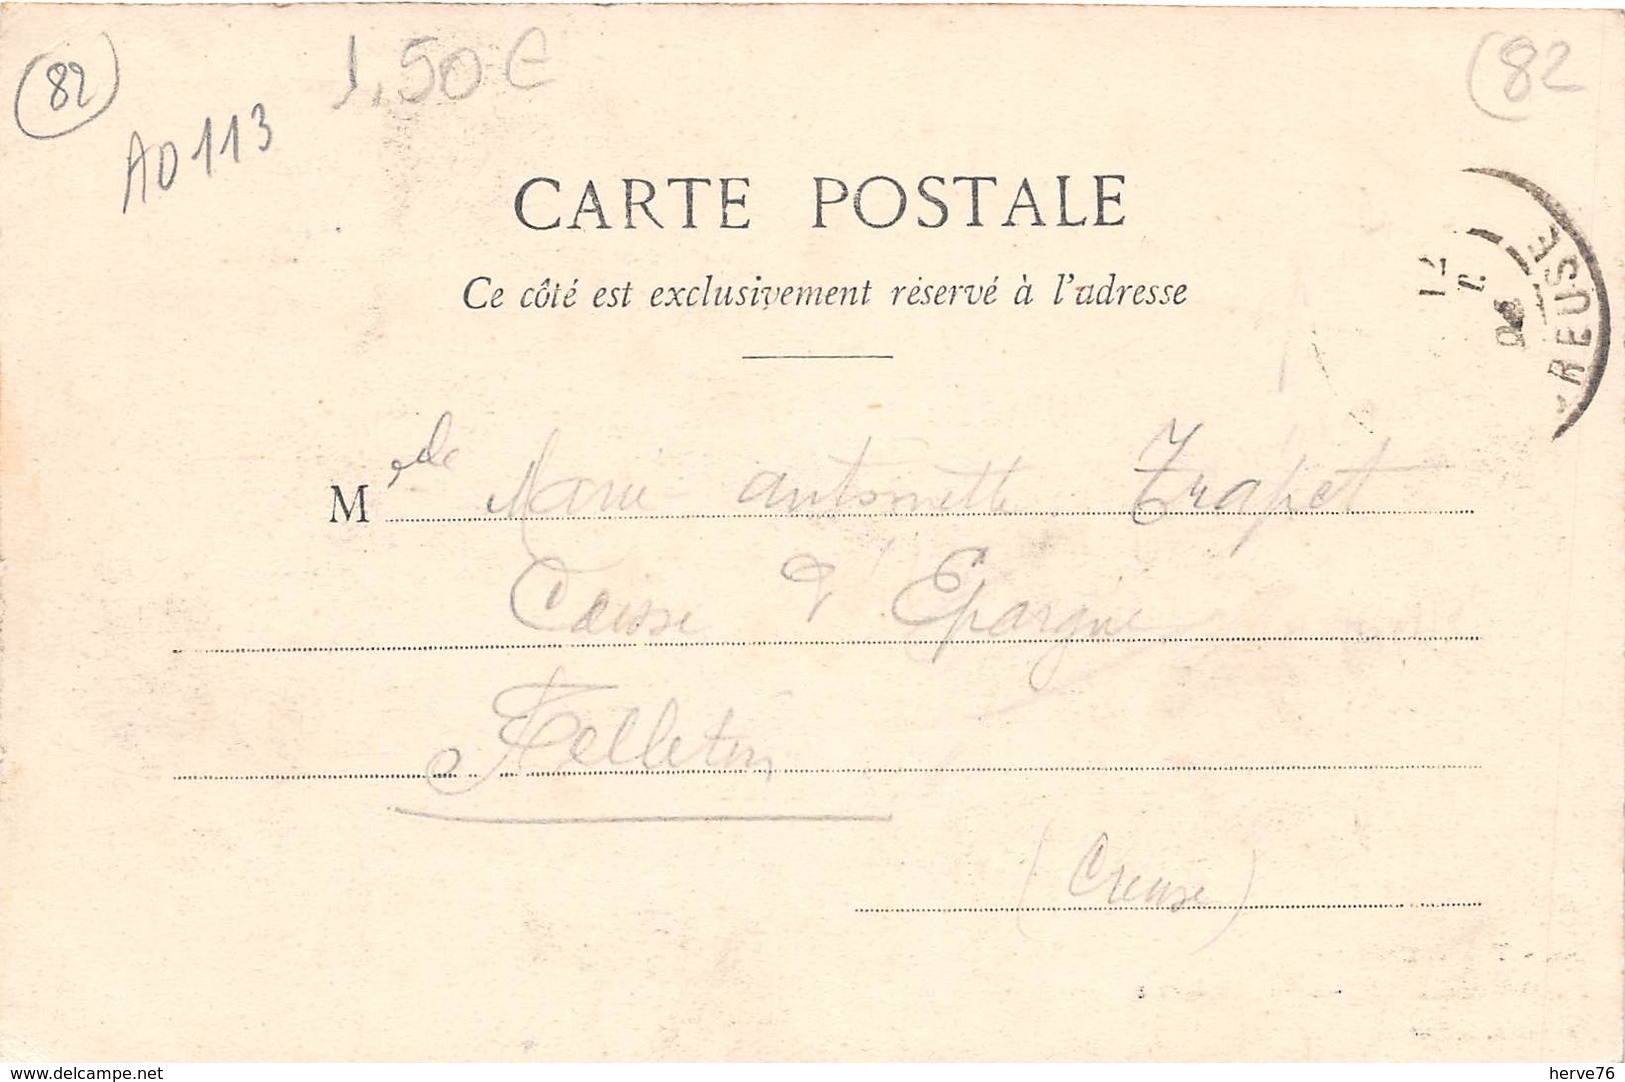 (82)
A0113
1,50 €
(82
CARTE POSTALE
Ce côté est exclusivement réservé à l'adresse
CREUSE
Melle Marie antoinette Trapet
Caisse d'Epargne
Felletin
(Creuse)
www.delcampe.net
herve76